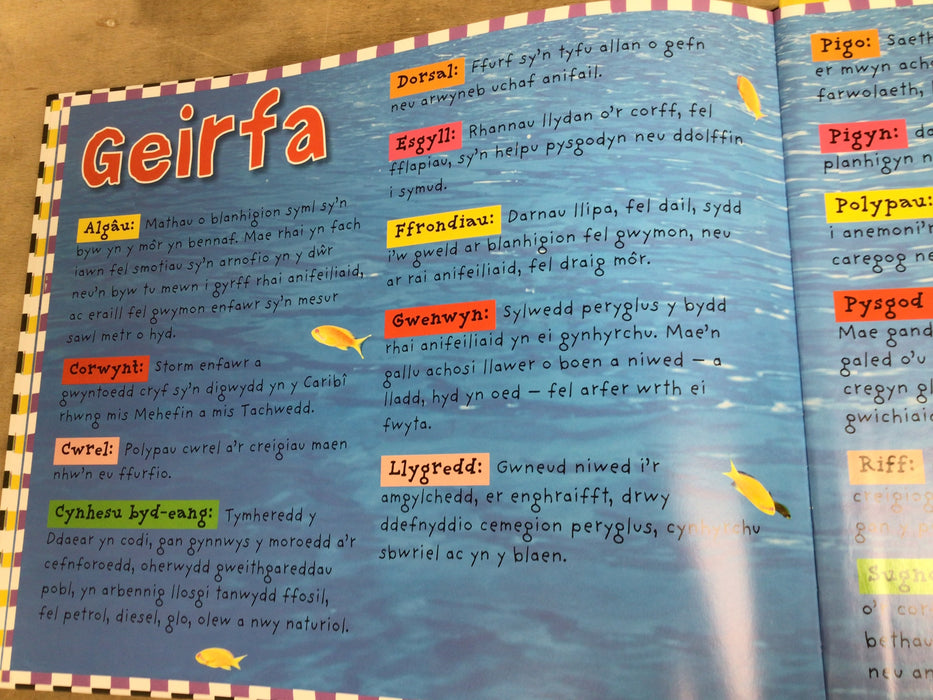 Geirfa
Algâu: Mathau o blanhigion syml sy'n
byw yn y môr yn bennaf. Mae rhai yn fach
iawn fel smotiau sy'n arnofio yn y dŵr
neu'n byw tu mewn i gyrff rhai anifeiliaid,
ac eraill fel gwymon enfawr sy'n mesur
sawl metr o hyd.
Corwynt: Storm enfawr a
gwyntoedd cryf sy'n digwydd yn y Caribî
rhwng mis Mehefin a mis Tachwedd.
Cwrel: Polypau cwrel a'r creigiau maen
nhw'n eu ffurfio.
Cynhesu byd-eang: Tymheredd y
Ddaear yn codi, gan gynnwys y moroedd a'r
cefnforoedd, oherwydd gweithgareddau
pobl, yn arbennig llosgi tanwydd ffosil,
fel petrol, diesel, glo, olew a nwy naturiol.
Dorsal: Ffurf sy'n tyfu allan o gefn
neu arwyneb uchaf anifail.
Esgyll: Rhannau llydan o'r corff, fel
fflapiau, sy'n helpu pysgodyn neu ddolffin
i symud.
Ffrondiau: Darnau llipa, fel dail, sydd
i'w gweld ar blanhigion fel gwymon, neu
ar rai anifeiliaid, fel draig môr.
Gwenwyn: Sylwedd peryglus y bydd
rhai anifeiliaid yn ei gynhyrchu. Mae'n
gallu achosi llawer o boen a niwed – a
lladd, hyd yn oed – fel arfer wrth ei
fwyta.
Llygredd: Gwneud niwed i'r
amgylchedd, er enghraifft, drwy
ddefnyddio cemegion peryglus, cynhyrchu
sbwriel ac yn y blaen.
Pigo: Saeth
er mwyn achs
farwolaeth,
Pigyn:
planhigyn n
Polypau:
i anemoni'r
caregog ne
Pysgod
Mae gand
galed o'u
cregyn gl
gwichiaid
Riff:
creigiog
gan y p
Sugn
o' cor
bethau
neu an